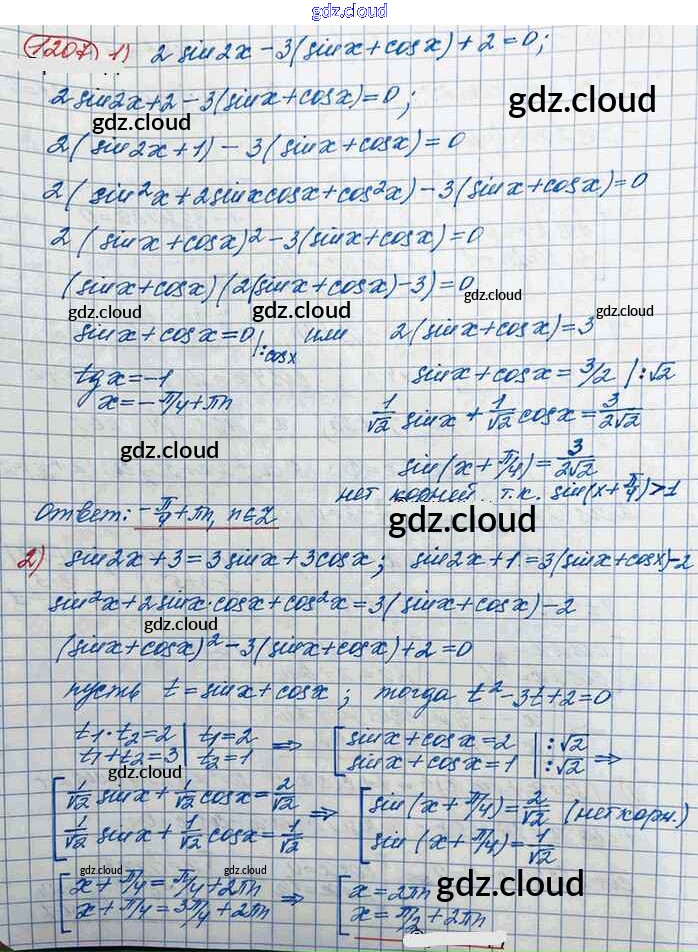 gdz.cloud
1207 1) 2 sin2x − 3(sinx + cosx) + 2 = 0;
2sin2x + 2 − 3(sinx + cosx) = 0;
gdz.cloud
gdz.cloud
2(sin2x + 1) − 3(sinx + cosx) = 0
2(sin²x + 2sinxcosx + cos²x) − 3(sinx + cosx) = 0
2(sinx + cosx)² − 3(sinx + cosx) = 0
(sinx + cosx)(2(sinx + cosx) − 3) = 0
gdz.cloud
gdz.cloud
gdz.cloud
gdz.cloud
sinx + cosx = 0 |:cosx или 2(sinx + cosx) = 3
tgx = −1
sinx + cosx = 3/2 |:√2
x = −π/4 + πn
1/√2 sinx + 1/√2 cosx = 3/2√2
gdz.cloud
sin(x + π/4) = 3/2√2
gdz.cloud
нет корней т.к. sin(x + π/4) > 1
Ответ: −π/4 + πn, n∈Z
gdz.cloud
2) sin2x + 3 = 3sinx + 3cosx; sin2x + 1 = 3(sinx + cosx) − 2
sin²x + 2sinx·cosx + cos²x = 3(sinx + cosx) − 2
gdz.cloud
(sinx + cosx)² − 3(sinx + cosx) + 2 = 0
пусть t = sinx + cosx; тогда t² − 3t + 2 = 0
t₁·t₂ = 2 | t₁ = 2 ⇒ [ sinx + cosx = 2 |:√2
t₁ + t₂ = 3 | t₂ = 1 sinx + cosx = 1 |:√2 ⇒
gdz.cloud
[ 1/√2 sinx + 1/√2 cosx = 2/√2 ⇒ [ sin(x + π/4) = 2/√2 (нет корн.)
1/√2 sinx + 1/√2 cosx = 1/√2 sin(x + π/4) = 1/√2
gdz.cloud
gdz.cloud
gdz.cloud
[ x + π/4 = π/4 + 2πn ⇒ [ x = 2πn
x + π/4 = 3π/4 + 2πn x = π/2 + 2πn
gdz.cloud